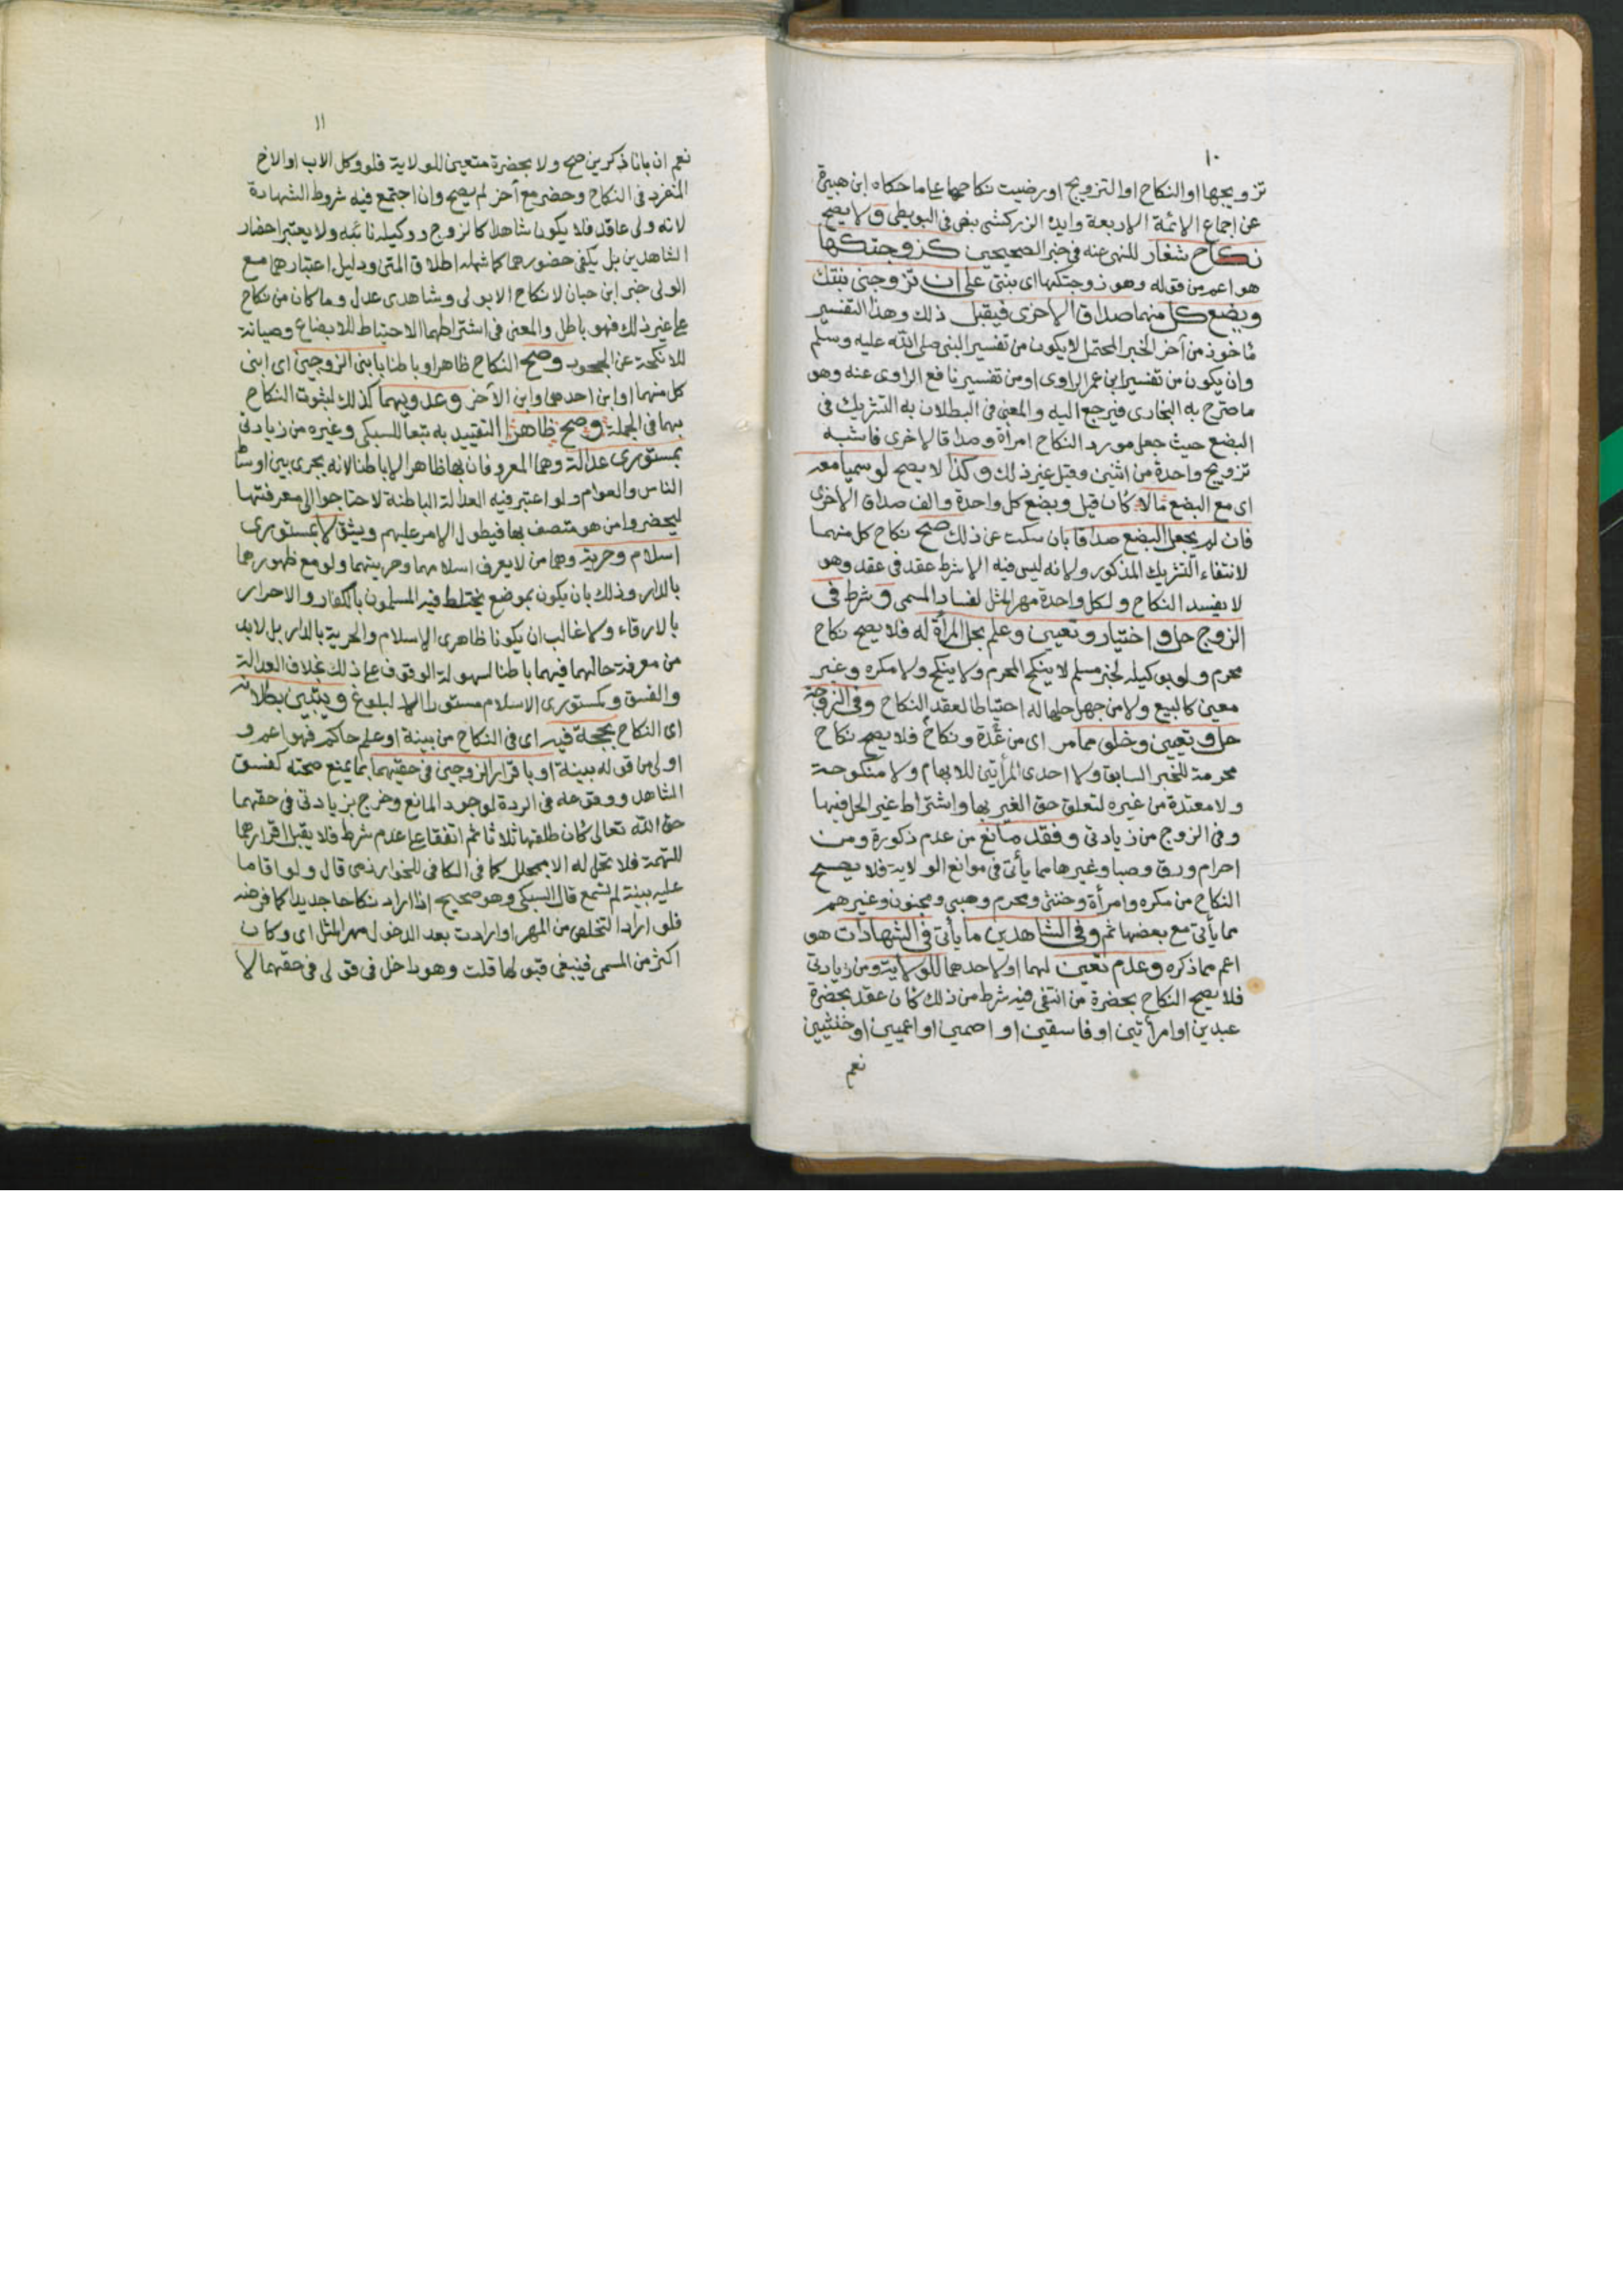 ١٠
تزويجها او النكاح او التزويج او رضيت نكاحها على ما حكاه ابن هبيرة
عن اجماع الائمة الاربعة وايده الزركشى بنص فى البويطى ولا يصح
نكاح شغار للنهى عنه فى خبر الصحيحين كزوجتكها
هو اعم من قوله وهو زوجتكها اى بنتى على ان تزوجنى بنتك
وبضع كل منهما صداق الاخرى فيقبل ذلك وهذا التفسير
ماخوذ من آخر الخبر المحتمل لان يكون من تفسير النبى صلى الله عليه وسلم
وان يكون من تفسير ابن عمر الراوى او من تفسير نافع الراوى عنه وهو
ما صرح به البخارى فيرجع اليه والمعنى فى البطلان به التشريك فى
البضع حيث جعل مورد النكاح امرأة وصداقا لاخرى فاشبه
تزويج واحدة من اثنين وقيل غير ذلك وكذا لا يصح لو سميا معه
اى مع البضع مالا كان قيل وبضع كل واحدة والف صداق الاخرى
فان لم يجعل البضع صداقا بان سكت عن ذلك صح نكاح كل منهما
لانتفاء التشريك المذكور ولانه ليس فيه الا شرط عقد فى عقد وهو
لا يفسد النكاح ولكل واحدة مهر المثل لفساد المسمى وشرط فى
الزوج حل واختيار وتعيين وعلم بحل المرأة له فلا يصح نكاح
محرم ولو بوكيله لخبر مسلم لا ينكح المحرم ولا ينكح ولا مكره وغير
معين كالبيع ولا من جهل حلها له احتياطا لعقد النكاح وفى الزوجة
حل وتعيين وخلو مما مر اى من عدة ونكاح فلا يصح نكاح
محرمة للخبر السابق ولا احدى المرأتين للابهام ولا منكوحة
ولا معتدة من غيره لتعلق حق الغير بها واشتراط غير الحل فيها
وفى الزوج من زيادتى وفقد مانع من عدم ذكورة ومن
احرام ورق وصبا وغيرها مما يأتى فى موانع الولاية فلا يصح
النكاح من مكره وامرأة وخنثى ومحرم وصبى ومجنون وغيرهم
مما يأتى مع بعضها ثم وفى الشاهدين ما يأتى فى الشهادات هو
اعم مما ذكره وعدم تعين لهما او لاحدهما للولاية ومن زيادتى
فلا يصح النكاح بحضرة من انتفى فيه شرط من ذلك كان عقد بحضرة
عبدين او امرأتين او فاسقين او اصمين او اعميين او خنثيين
نعم
١١
نعم ان بانا ذكرين صح ولا بحضرة متعين للولاية فلو وكل الاب او الاخ
المنفرد فى النكاح وحضر مع آخر لم يصح وان اجتمع فيه شروط الشهادة
لانه ولى عاقد فلا يكون شاهدا كالزوج ووكيله نائبه ولا يعتبر احضار
الشاهدين بل يكفى حضورهما كما شمله اطلاق المتن ودليل اعتبارهما مع
الولى خبر ابن حبان لا نكاح الا بولى وشاهدى عدل وما كان من نكاح
على غير ذلك فهو باطل والمعنى فى اشتراطهما الاحتياط للابضاع وصيانة
للانكحة عن الجحود وصح النكاح ظاهرا وباطنا بابنى الزوجين اى ابنى
كل منهما او ابن احدهما وابن الآخر وعدويهما كذلك لثبوت النكاح
بهما فى الجملة وصح ظاهرا التقييد به تبعا للسبكى وغيره من زيادتى
بمستورى عدالة وهما المعروفان بها ظاهرا لا باطنا لانه يجرى بين اوساط
الناس والعوام ولو اعتبر فيه العدالة الباطنة لاحتاجوا الى معرفتها
ليحضروا من هو متصف بها فيطول الامر عليهم ويشق لا بمستورى
اسلام وحرية وهما من لا يعرف اسلامهما وحريتهما ولو مع ظهورهما
بالدار وذلك بان يكون بموضع يختلط فيه المسلمون بالكفار والاحرار
بالارقاء ولا غالب ان يكونا ظاهرى الاسلام والحرية بالدار بل لا بد
من معرفة حالهما فيهما باطنا لسهولة الوقوف على ذلك بخلاف العدالة
والفسق وكمستورى الاسلام مستورا البلوغ ويتبين بطلانه
اى النكاح بحجة فيه اى فى النكاح من بينة او علم حاكم فهو اعم و
اولى من قوله ببينة او باقرار الزوجين فى حقهما بما يمنع صحته كفسق
الشاهد ووقوعه فى الردة لوجود المانع وخرج بزيادتى فى حقهما
حق الله تعالى كان طلقها ثلاثا ثم اتفقا على عدم شرط فلا يقبل اقرارهما
للتهمة فلا تحل له الا بمحلل كما فى الكافى للخوارزمى قال ولو اقاما
عليه بينة لم تسمع قال السبكى وهو صحيح اذا اراد نكاحا جديدا كما فرضه
فلو اراد التخلص من المهر او ارادت بعد الدخول مهر المثل اى وكان
اكثر من المسمى فينبغى قبولها قلت وهو داخل فى قولى فى حقهما لا